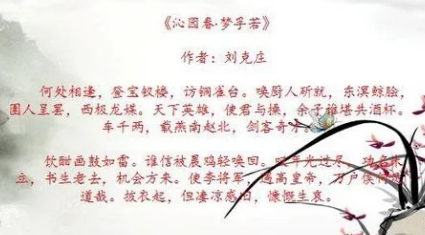 《沁园春·梦孚若》
作者：刘克庄
何处相逢，登宝钗楼，访铜雀台。唤厨人斫就，东溟鲸脍，
圉人呈罢，西极龙媒。天下英雄，使君与操，余子谁堪共酒杯。
车千两，载燕南赵北，剑客奇
饮酣画鼓如雷。谁信被晨鸡轻唤回。叹年光过尽，功名未
立，书生老去，机会方来。使李将军，遇高皇帝，万户侯何
道哉。披衣起，但凄凉感旧，慷慨生哀。